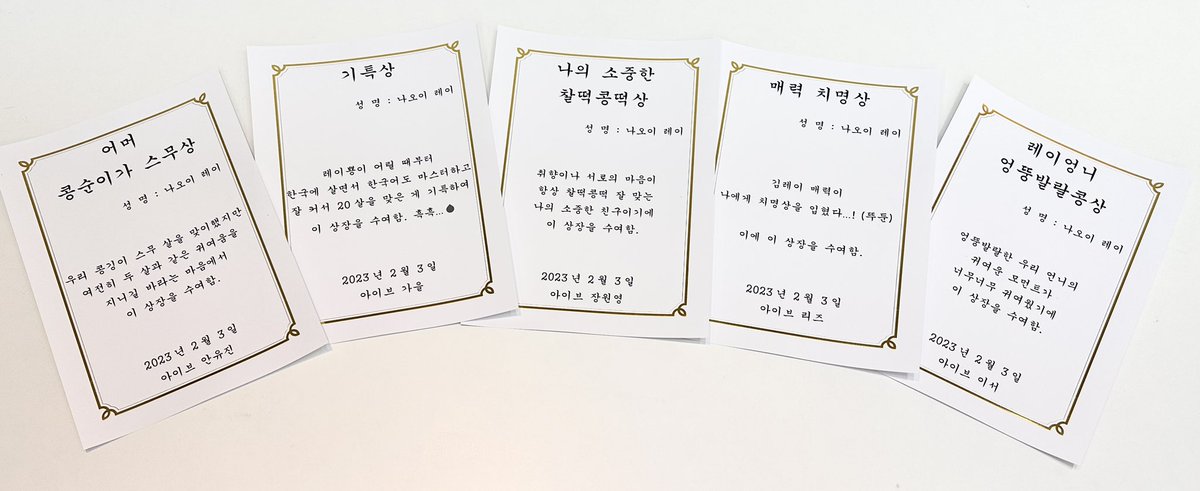 어머
콩순이가 스무상
성 명 : 나오이 레이
우리 콩깅이 스무 살을 맞이했지만
여전히 두 살과 같은 귀여움을
지니길 바라는 마음에서
이 상장을 수여함.
2023년 2월 3일
아이브 안유진
기특상
성 명 : 나오이 레이
레이뿅이 어릴 때부터
한국에 살면서 한국어도 마스터하고
잘 커서 20살을 맞은 게 기특하여
이 상장을 수여함. 흑흑...
2023년 2월 3일
아이브 가을
나의 소중한
찰떡콩떡상
성 명 : 나오이 레이
취향이나 서로의 마음이
항상 찰떡콩떡 잘 맞는
나의 소중한 친구이기에
이 상장을 수여함.
2023년 2월 3일
아이브 장원영
매력 치명상
성 명 : 나오이 레이
김레이 매력이
나에게 치명상을 입혔다...! (뚜둔)
이에 이 상장을 수여함.
2023년 2월 3일
아이브 리즈
레이언니
엉뚱발랄콩상
성 명 : 나오이 레이
엉뚱발랄한 우리 언니의
귀여운 모먼트가
너무너무 귀여웠기에
이 상장을 수여함.
2023년 2월 3일
아이브 이서